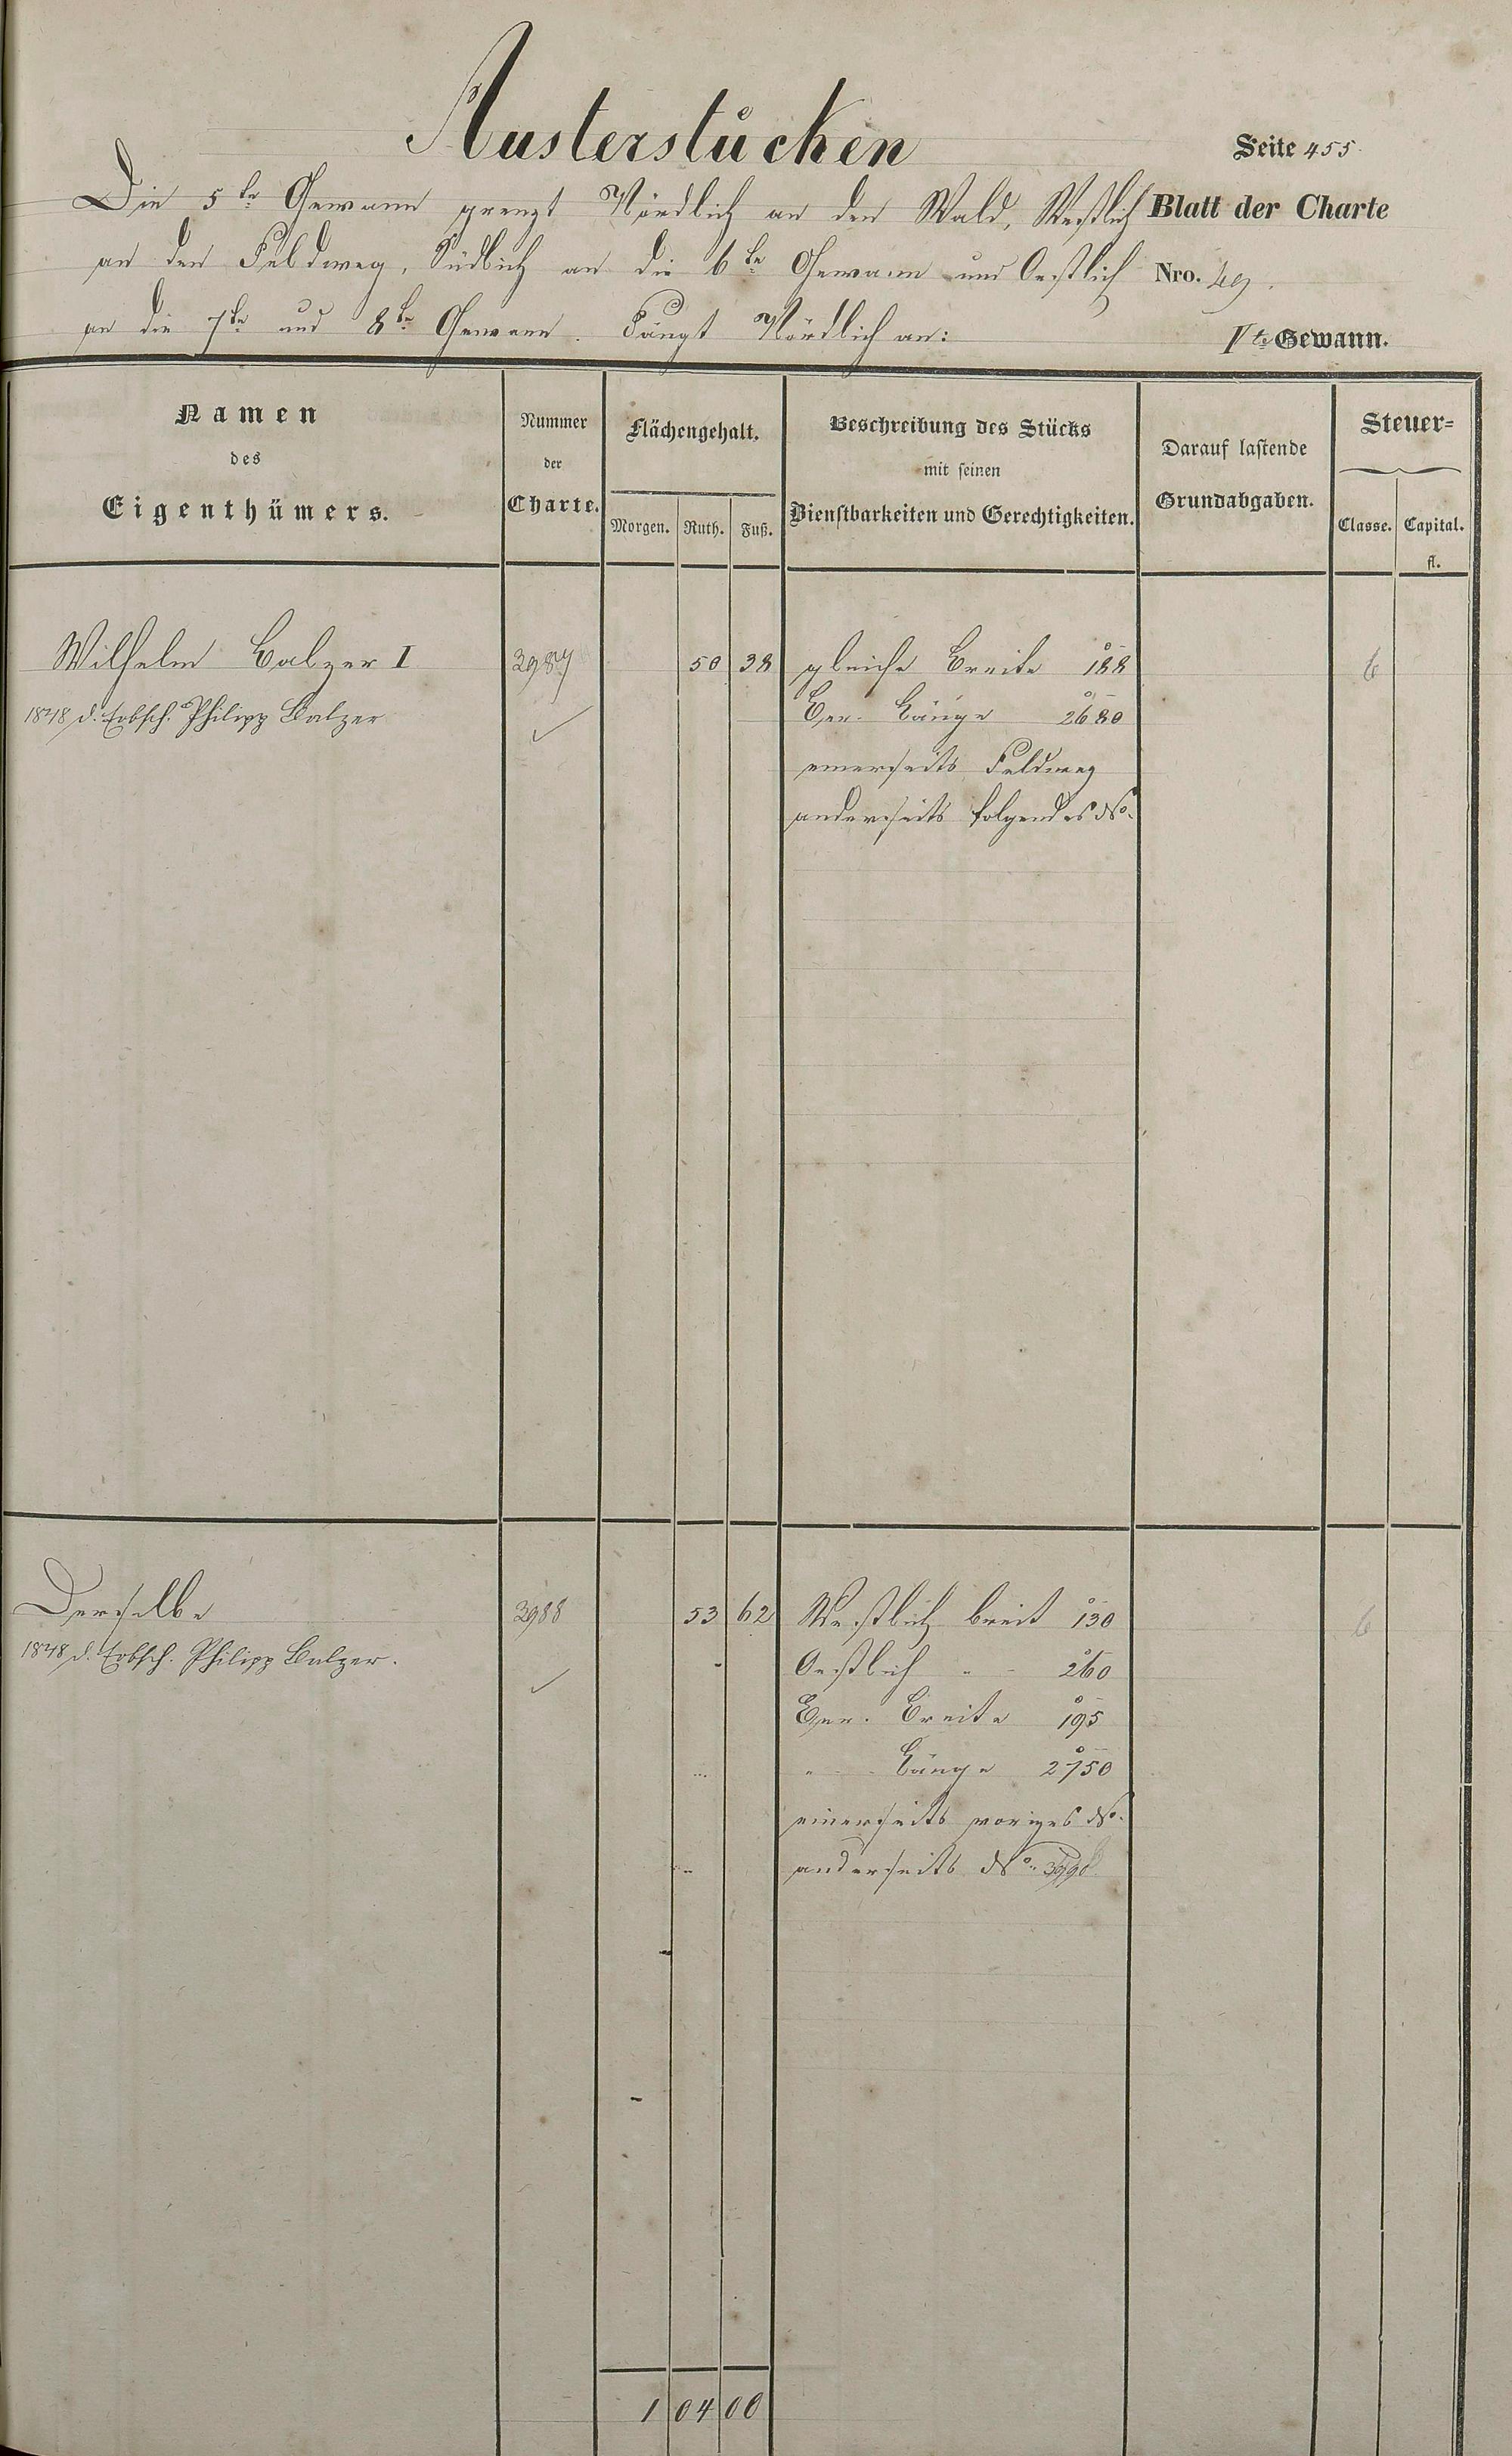 Austerstücken
Seite 455.
Die 5te Gewann grenzt Nördlich an den Wald, Westlich
Blatt der Charte
an den Feldweg, Südlich an die 6te Gewann und Oestlich
Nro. 49.
an die 7te und 8te Gewann. Fängt Nördlich an:
Vte Gewann.
Namen
des
Eigenthümers.
Nummer
der
Charte.
Flächengehalt.
Morgen. Ruth. Fuß.
Beschreibung des Stücks
mit seinen
Dienstbarkeiten und Gerechtigkeiten.
Darauf lastende
Grundabgaben.
Steuer=
Classe. Capital.
fl.
Wilhelm Balzer I 3987 50 38 gleiche Breite 188 6
1848 d. Erbsch. Philipp Balzer
Gen. Länge 2680
einerseits Feldweg
anderseits folgendes No.
Derselbe 3988 53 62 Westlich breit 130 6
1848 d. Erbsch. Philipp Balzer.
Oestlich " 260
Gen. Breite 195
" Länge 2750
einerseits voriges No.
anderseits No.
1 04 00